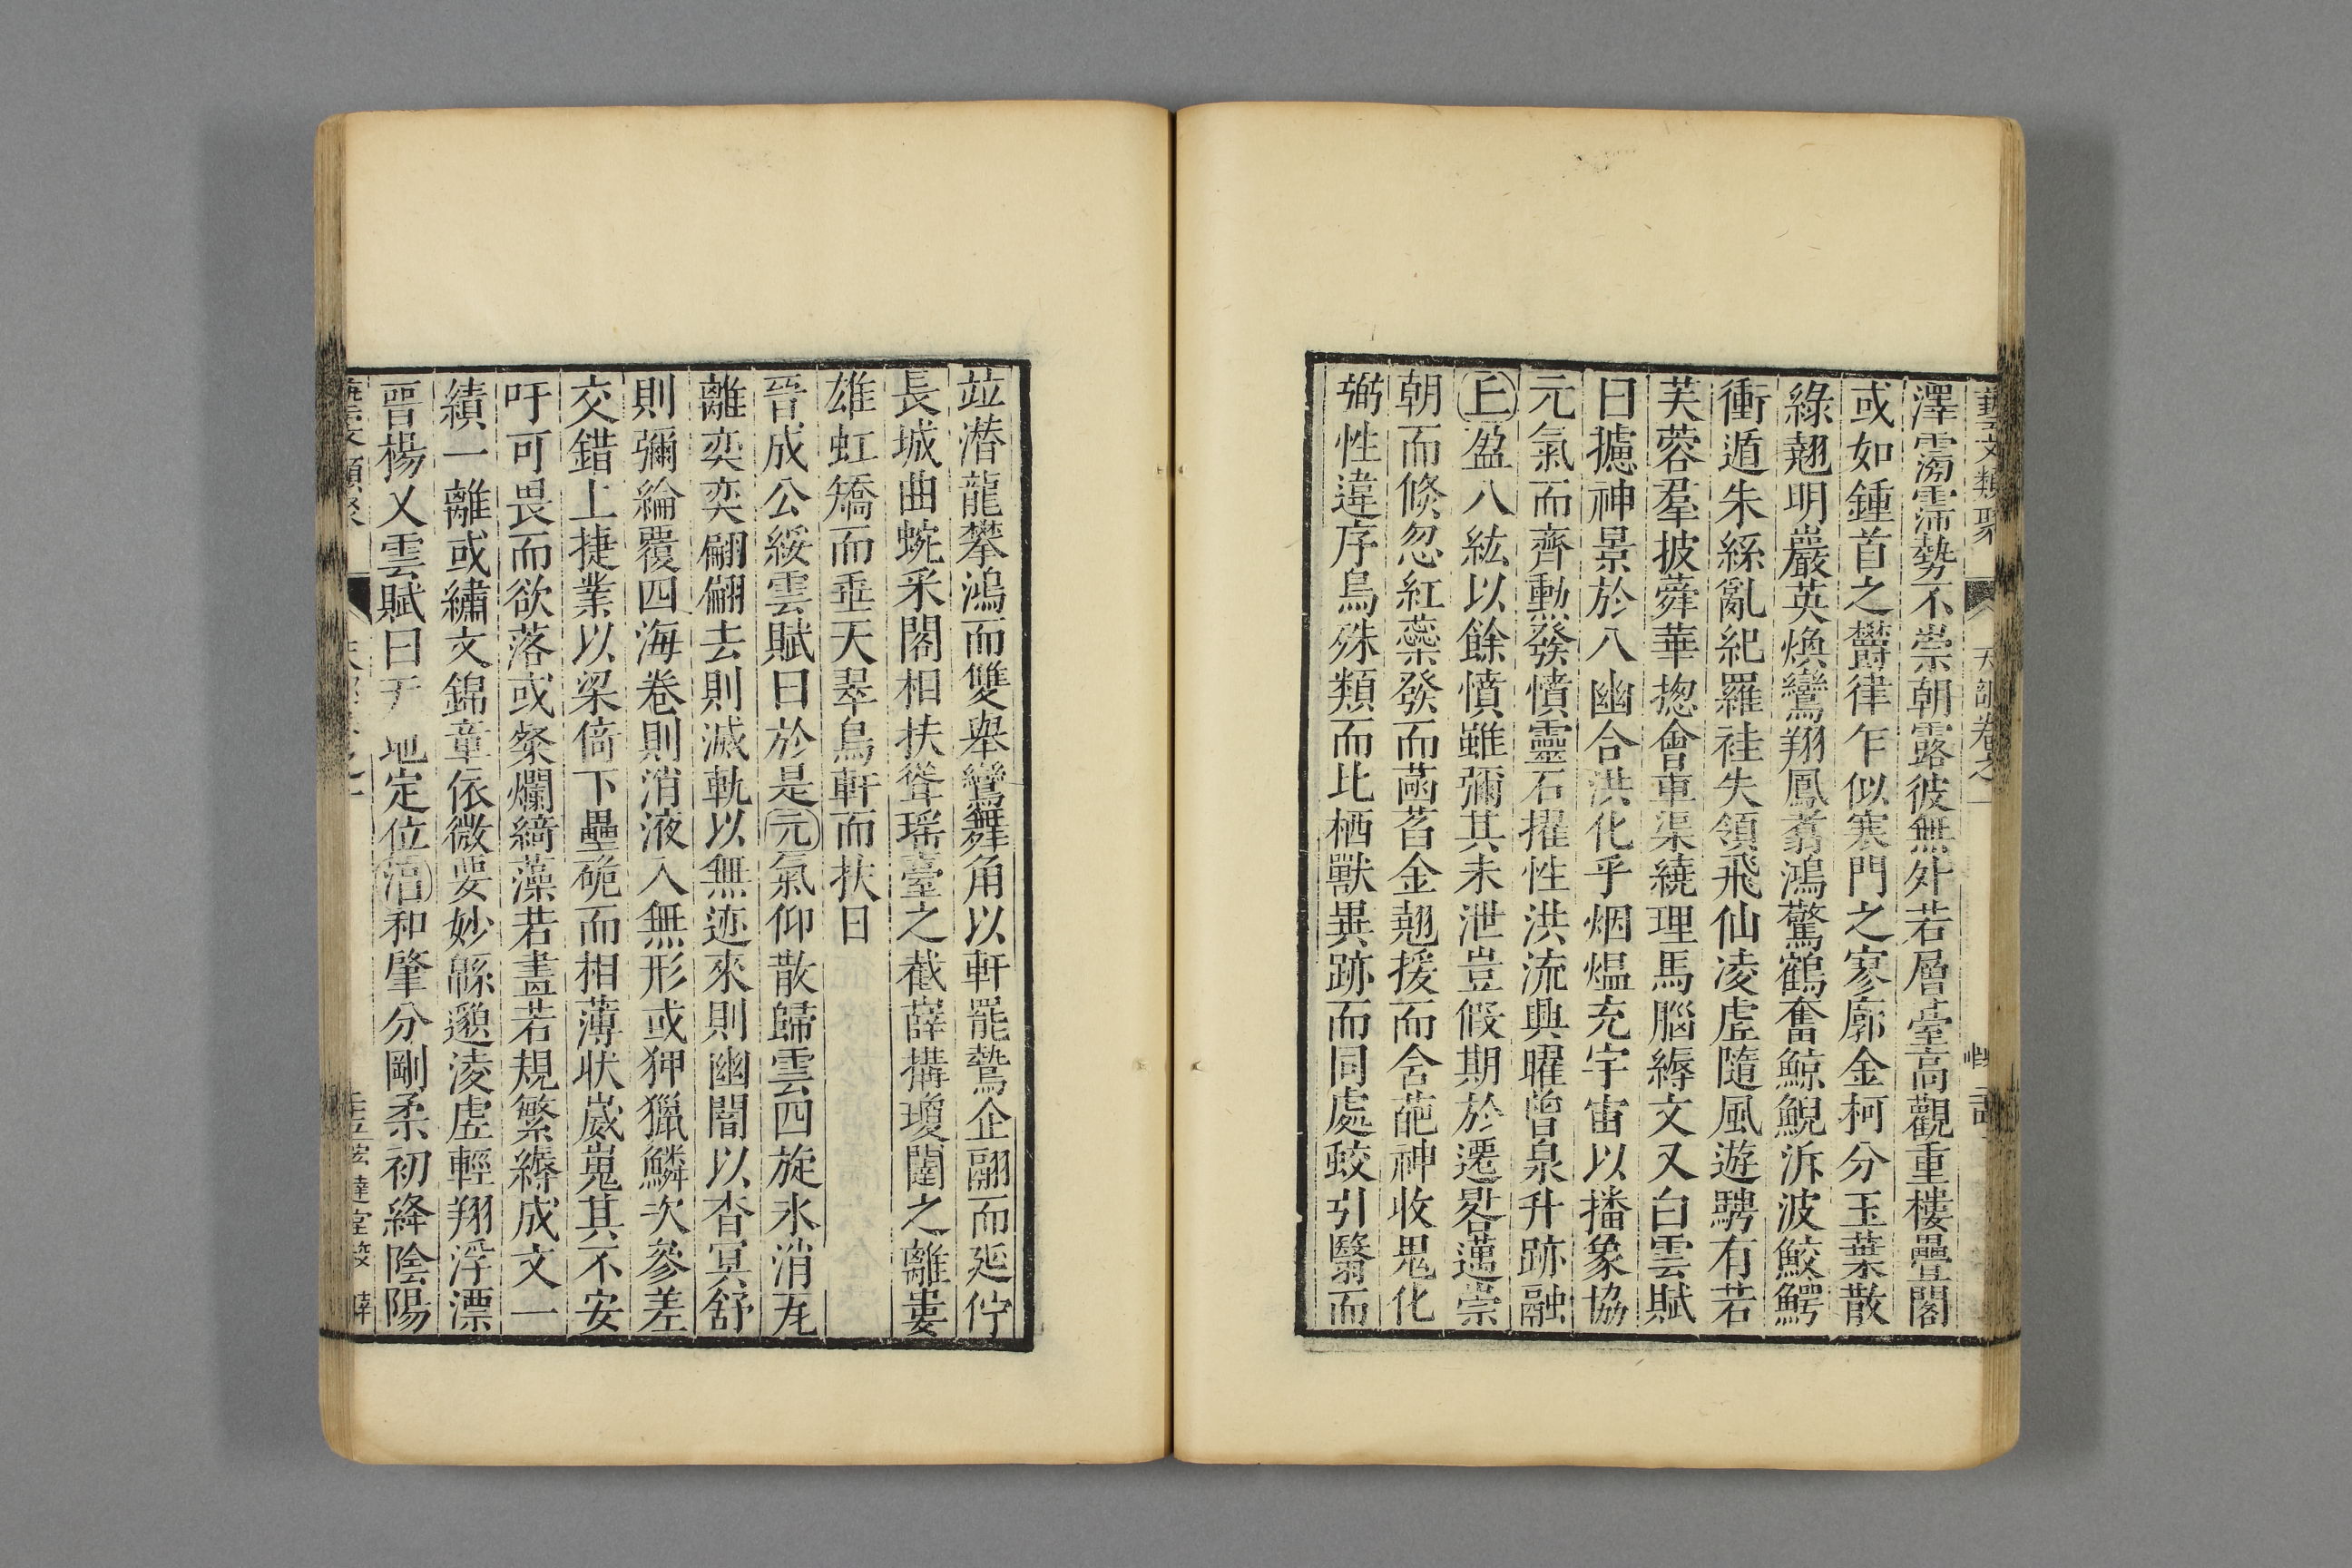 藝文類聚 天部卷之一
澤霶霈勢不崇朝露彼無外若層臺高觀重樓疊閣
或如鍾首之欝律乍似寒門之寥廓金柯分玉葉散
綠翹明巖英煥鸞翔鳳翥鴻驚鶴奮鯨鯢泝波鮫鰐
衝遁朱絲亂紀羅袿失領飛仙凌虛隨風遊騁有若
芙蓉羣披蕣華揔會車渠繞理馬腦縟文又白雲賦
曰攄神景於八幽合洪化乎烟熅充宇宙以播象協
元氣而齊勳發憤靈石擢性洪流興曜曾泉升跡融
丘盈八紘以餘憤雖彌其未泄豈假期於遷晷邁崇
朝而倏忽紅蘂發而菡萏金翹援而含葩神收鬼化
弼性違序鳥殊類而比栖獸異跡而同處蛟引翳而
竝潜龍攀鴻而雙舉鸞舞角以軒罷鷙企翮而延佇
長城曲蜿采閣相扶聳瑶臺之截嶭構瓊闥之離婁
雄虹矯而垂天翠鳥軒而扶日
晉成公綏雲賦曰於是元氣仰散歸雲四旋氷消瓦
離奕奕翩翩去則滅軌以無迹來則幽闇以杳冥舒
則彌綸覆四海卷則消液入無形或狎獵鱗次參差
交錯上捷業以梁倚下壘硊而相薄状崴嵬其不安
吁可畏而欲落或粲爛綺藻若畫若規繁縟成文一
績一離或繡文錦章依微要妙緜邈凌虛輕翔浮漂
晉楊乂雲賦曰 地定位 和肇分剛柔初絳陰陽